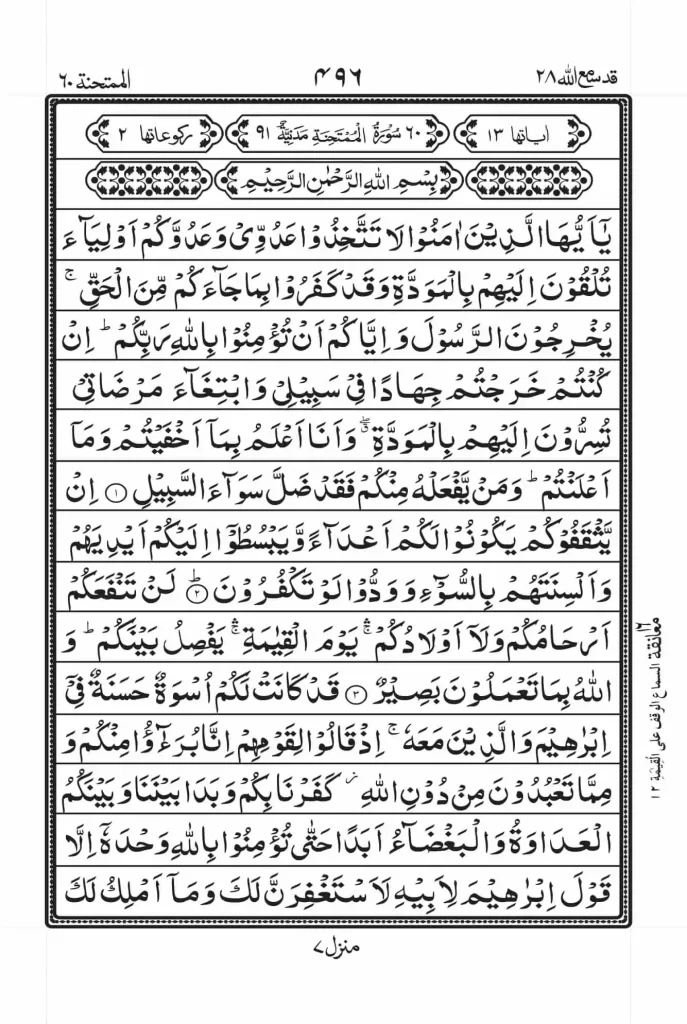 قد سمع الله ۲۸
۴۹۶
الممتحنة ۶۰
اٰیاتها ۱۳
۶۰ سُوْرَةُ الْمُمْتَحِنَةِ مَدَنِیَّةٌ ۹۱
رکوعاتها ۲
بِسْمِ اللهِ الرَّحْمٰنِ الرَّحِیْمِ
یٰۤاَیُّهَا الَّذِیْنَ اٰمَنُوْا لَا تَتَّخِذُوْا عَدُوِّیْ وَعَدُوَّكُمْ اَوْلِیَآءَ
تُلْقُوْنَ اِلَیْهِمْ بِالْمَوَدَّةِ وَقَدْ كَفَرُوْا بِمَا جَآءَكُمْ مِّنَ الْحَقِّ ۚ
یُخْرِجُوْنَ الرَّسُوْلَ وَاِیَّاكُمْ اَنْ تُؤْمِنُوْا بِاللهِ رَبِّكُمْ ؕ اِنْ
كُنْتُمْ خَرَجْتُمْ جِهَادًا فِیْ سَبِیْلِیْ وَابْتِغَآءَ مَرْضَاتِیْ
تُسِرُّوْنَ اِلَیْهِمْ بِالْمَوَدَّةِ ۖۗ وَاَنَا اَعْلَمُ بِمَاۤ اَخْفَیْتُمْ وَمَاۤ
اَعْلَنْتُمْ ؕ وَمَنْ یَّفْعَلْهُ مِنْكُمْ فَقَدْ ضَلَّ سَوَآءَ السَّبِیْلِ ۝۱ اِنْ
یَّثْقَفُوْكُمْ یَكُوْنُوْا لَكُمْ اَعْدَآءً وَّیَبْسُطُوْۤا اِلَیْكُمْ اَیْدِیَهُمْ
وَاَلْسِنَتَهُمْ بِالسُّوْٓءِ وَوَدُّوْا لَوْ تَكْفُرُوْنَ ۝۲ؕ لَنْ تَنْفَعَكُمْ
اَرْحَامُكُمْ وَلَاۤ اَوْلَادُكُمْ ۛۚ یَوْمَ الْقِیٰمَةِ ۛۚ یَفْصِلُ بَیْنَكُمْ ؕ وَ
اللهُ بِمَا تَعْمَلُوْنَ بَصِیْرٌ ۝۳ قَدْ كَانَتْ لَكُمْ اُسْوَةٌ حَسَنَةٌ فِیْۤ
اِبْرٰهِیْمَ وَالَّذِیْنَ مَعَهٗ ۚ اِذْ قَالُوْا لِقَوْمِهِمْ اِنَّا بُرَءٰٓؤُا مِنْكُمْ وَ
مِمَّا تَعْبُدُوْنَ مِنْ دُوْنِ اللهِ ؗ كَفَرْنَا بِكُمْ وَبَدَا بَیْنَنَا وَبَیْنَكُمُ
الْعَدَاوَةُ وَالْبَغْضَآءُ اَبَدًا حَتّٰی تُؤْمِنُوْا بِاللهِ وَحْدَهٗۤ اِلَّا
قَوْلَ اِبْرٰهِیْمَ لِاَبِیْهِ لَاَسْتَغْفِرَنَّ لَكَ وَمَاۤ اَمْلِكُ لَكَ
معانقة ۱۶
السماع الوقف علی القیٰمة ۱۲
منزل ۷